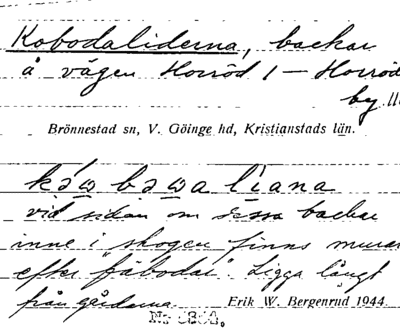 Kobodaliderna, backar
å vägen Horröd 1 — Horröd
by.
Brönnestad sn, V. Göinge hd, Kristianstads län.
vid sidan om dessa backar
inne i skogen, finns murar
efter "fäbodar". Ligga långt
från gårdarna.
Erik W. Bergenrud 1944.